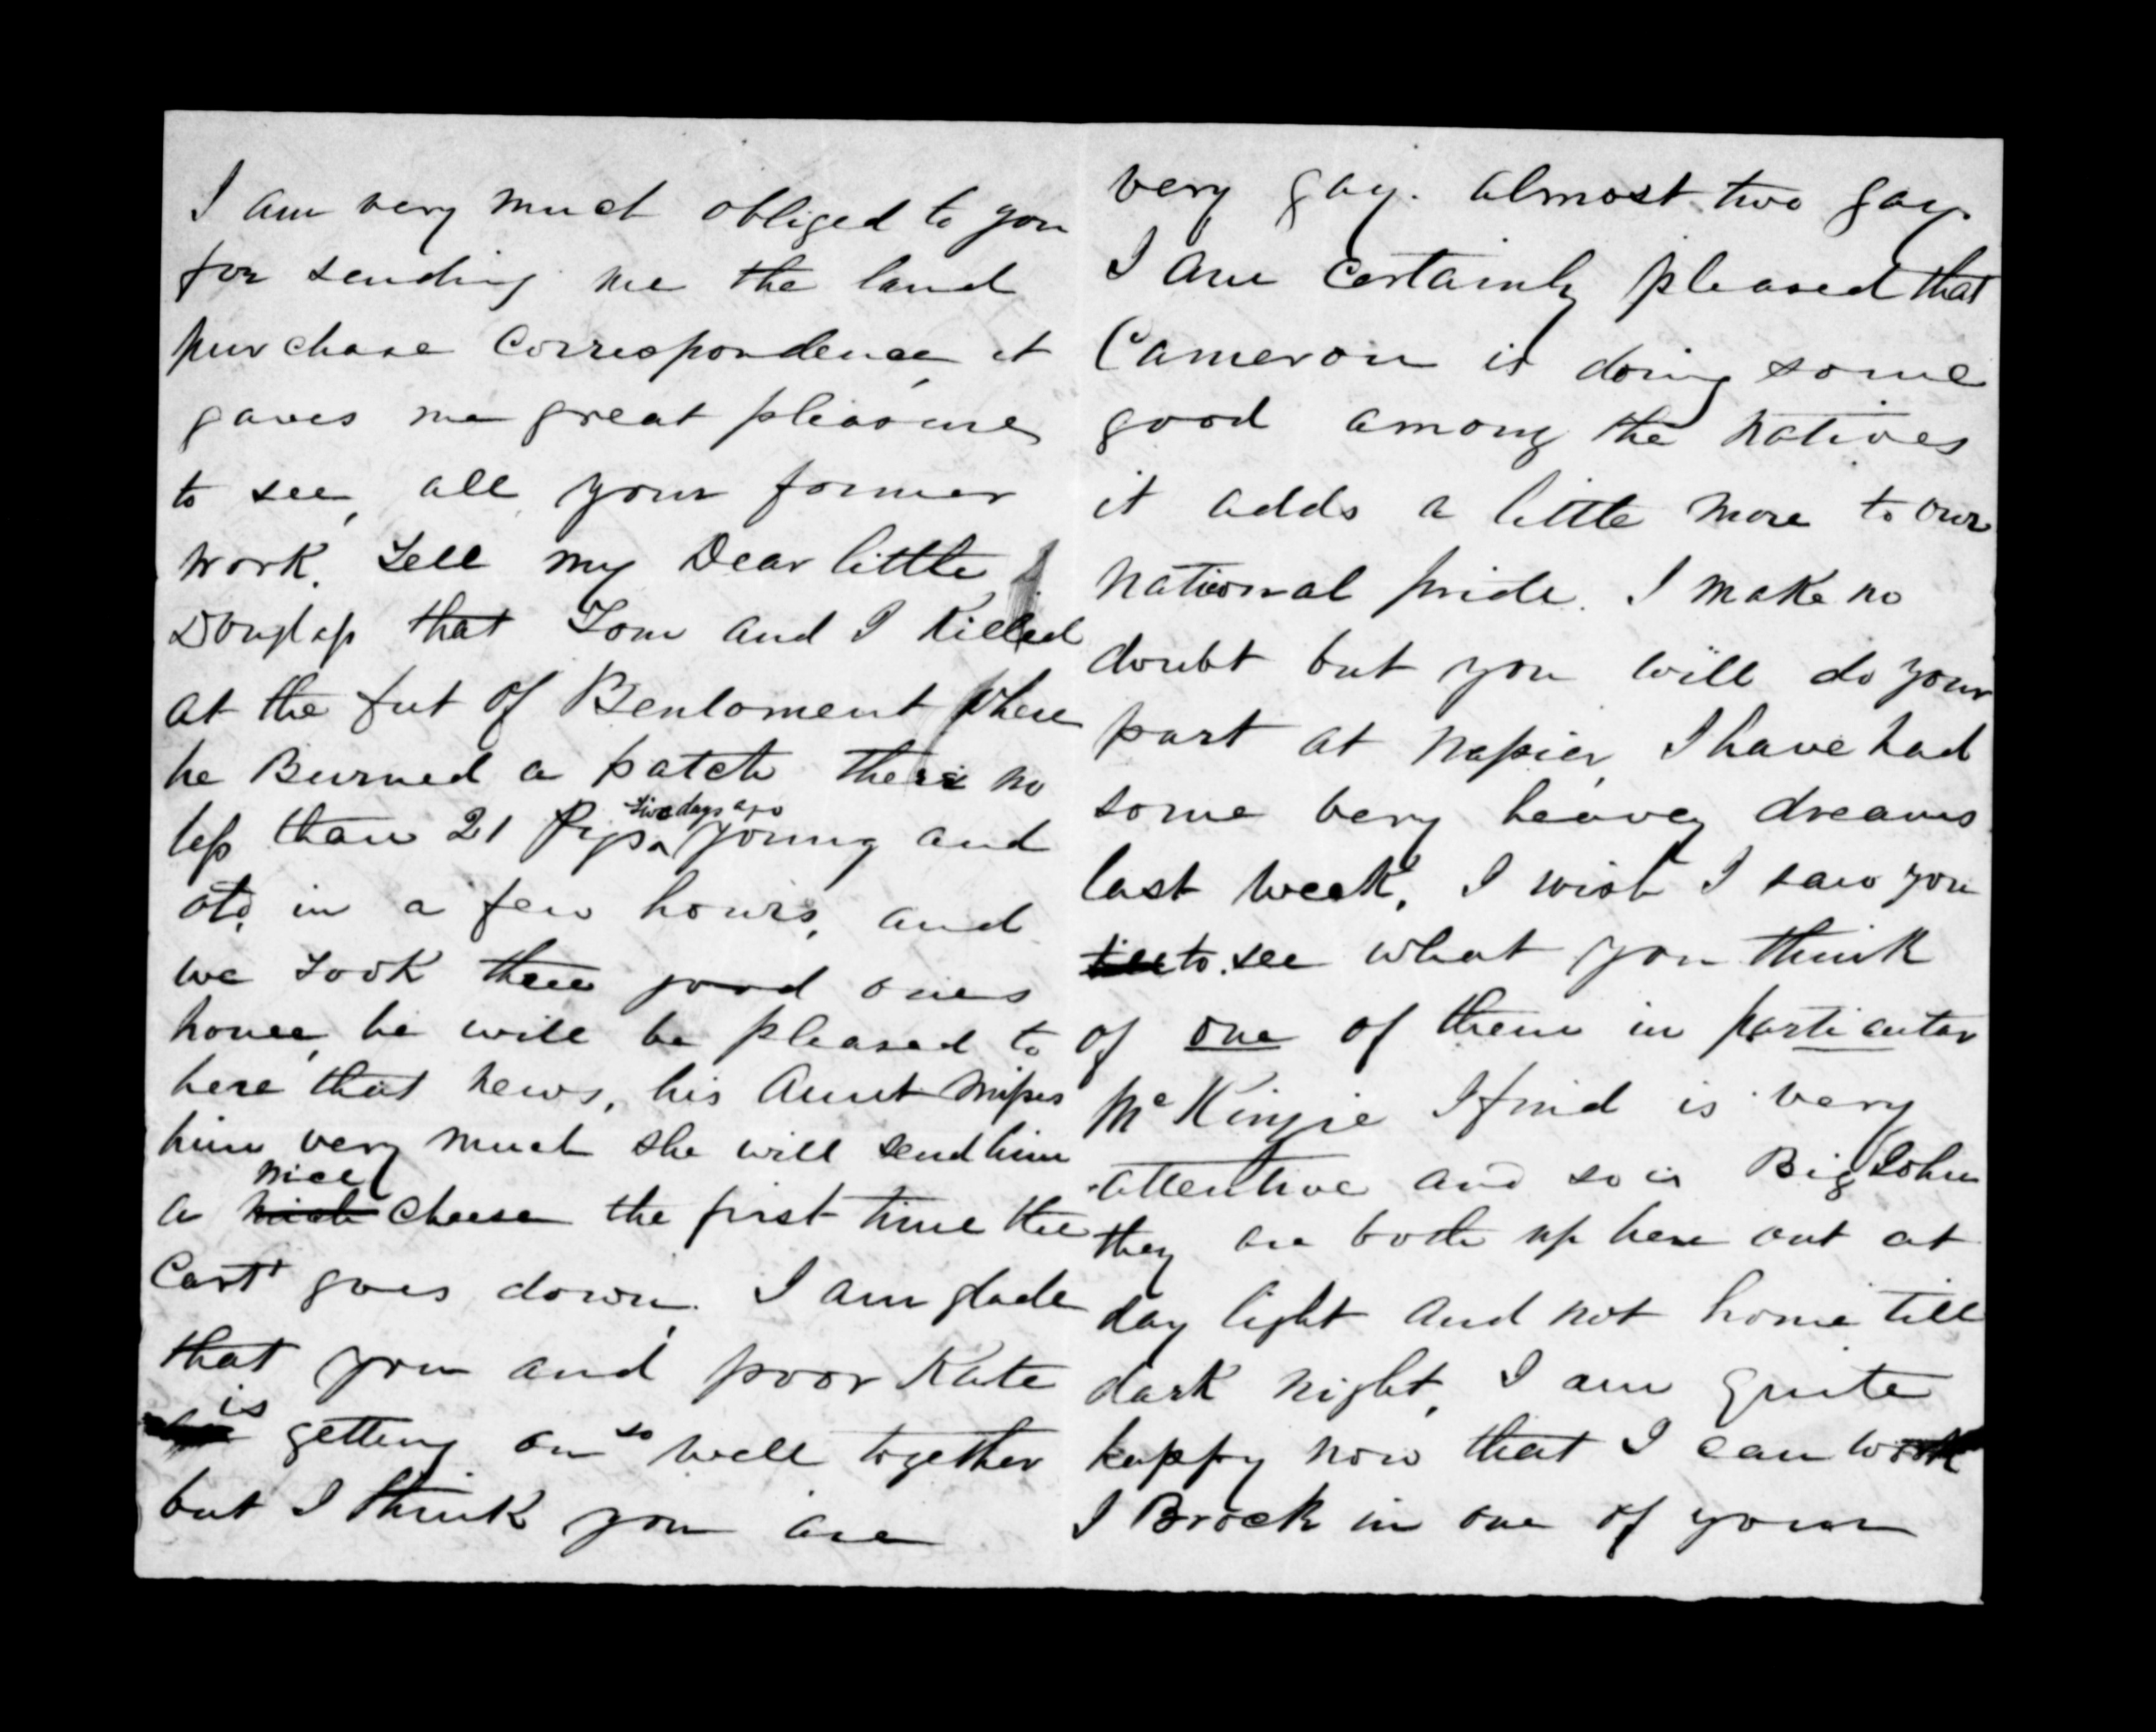 I am very much obliged to you
for sending me the land
purchase Correspondence, it
gaves me great pleasure
to see, all your former
work. Tell my Dear little
Douglass that Tom and I Killed
at the fut of Benloment where
he Burned a patch there no
less than 21 Pigs five days ago young and
old, in a few hours, and
we Took three good ones
home, he will be pleased to
here that news, his Aunt misses
him very much she will send him
a nice Cheese the first time the
Cart goes down. I am glade
that you and poor Kate
is getting on so well together
but I think you are
very gay. almost two gay.
I am Certainly pleased that
Cameron is doing some
good among the natives
it adds a little more to our
national pride. I make no
doubt but you will do your
part at Napier, I have had
some very heavey dreams
last week, I wish I saw you
to see what you think
of one of them in particular
McKinzie I find is very
attentive and so is Big John
they are both up here out at
day light and not home till
dark night, I am quite
happy now that I can work
I Brock in one of your